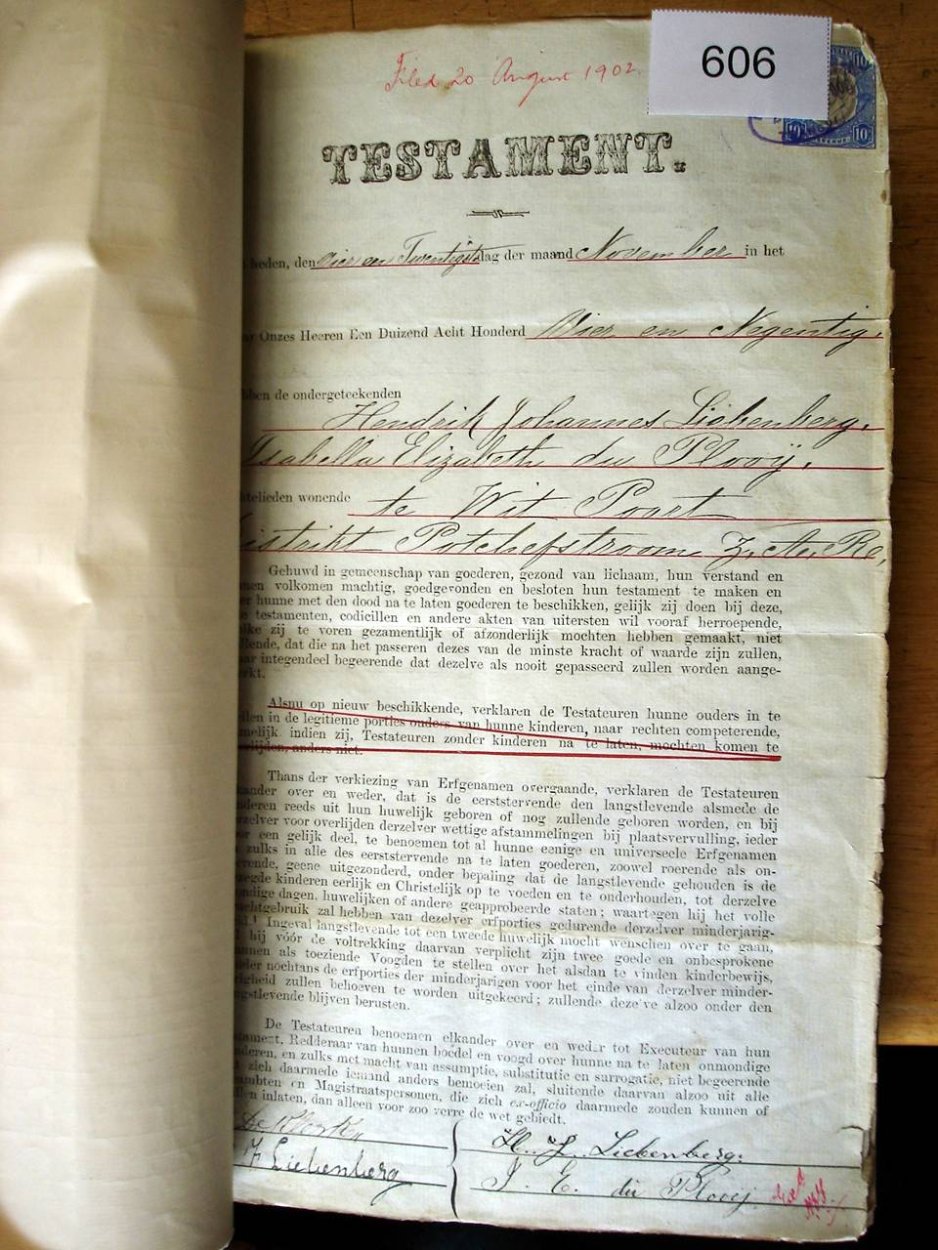 606
Filed 20 August 1902.
10
10 10
TESTAMENT.
heden, den vier en Twentigste dag der maand November in het
Onzes Heeren Een Duizend Acht Honderd Vier en Negentig.
de ondergeteekenden
Hendrik Johannes Liebenberg.
Isabella Elizabeth du Plooÿ.
telieden wonende te Wit Poort
istrikt Potchefstroom Z. A. Re,
Gehuwd in gemeenschap van goederen, gezond van lichaam, hun verstand en
nen volkomen machtig, goedgevonden en besloten hun testament te maken en
hunne met den dood na te laten goederen te beschikken, gelijk zij doen bij deze,
testamenten, codicillen en andere akten van uitersten wil vooraf herroepende,
lke zij te voren gezamentlijk of afzonderlijk mochten hebben gemaakt, niet
llende, dat die na het passeren dezes van de minste kracht of waarde zijn zullen,
ar integendeel begeerende dat dezelve als nooit gepasseerd zullen worden aange-
rkt.
Alsnu op nieuw beschikkende, verklaren de Testateuren hunne ouders in te
llen in de legitieme porties ouders van hunne kinderen, naar rechten competerende,
melijk indien zij, Testateuren zonder kinderen na te laten, mochten komen te
rlijden, anders niet.
Thans der verkiezing van Erfgenamen overgaande, verklaren de Testateuren
kander over en weder, dat is de eerststervende den langstlevende alsmede de
nderen reeds uit hun huwelijk geboren of nog zullende geboren worden, en bij
rzelver voor overlijden derzelver wettige afstammelingen bij plaatsvervulling, ieder
or een gelijk deel, te benoemen tot al hunne eenige en universeele Erfgenamen
zulks in alle des eerststervende na te laten goederen, zoowel roerende als on-
erende, geene uitgezonderd, onder bepaling dat de langstlevende gehouden is de
zegde kinderen eerlijk en Christelijk op te voeden en te onderhouden, tot derzelve
ndige dagen, huwelijken of andere geapprobeerde staten; waartegen hij het volle
uchtgebruik zal hebben van dezelver erfporties gedurende derzelver minderjarig-
Ingeval langstlevende tot een tweede huwelijk mocht wenschen over te gaan,
hij vóór de voltrekking daarvan verplicht zijn twee goede en onbesprokene
annen als toeziende Voogden te stellen over het alsdan te vinden kinderbewijs,
nder nochtans de erfporties der minderjarigen voor het einde van derzelver minder-
righeid zullen behoeven te worden uitgekeerd; zullende dezelve alzoo onder den
ngstlevende blijven berusten.
De Testateuren benoemen elkander over en weder tot Executeur van hun
tament, Redderaar van hunnen boedel en voogd over hunne na te laten onmondige
nderen, en zulks met macht van assumptie, substitutie en surrogatie, niet begeerende
zich daarmede iemand anders bemoeien zal, sluitende daarvan alzoo uit alle
ambten en Magistraatspersonen, die zich ex-officio daarmede zouden kunnen of
llen inlaten, dan alleen voor zoo verre de wet gebiedt.
H. J. Liebenberg.
Liebenberg
I. E. du Plooij